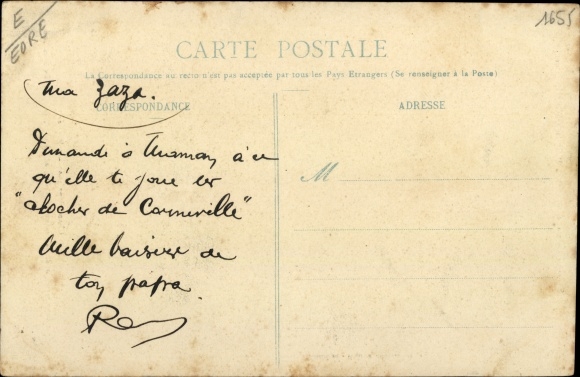 E
EURE
1655
CARTE POSTALE
La Correspondance au recto n'est pas acceptée par tous les Pays Etrangers (Se renseigner à la Poste)
CORRESPONDANCE
ADRESSE
Ma Zaza.
Demande à Maman à ce
qu'elle te joue les
"Clocher de Corneville"
Mille baisers de
ton papa
M